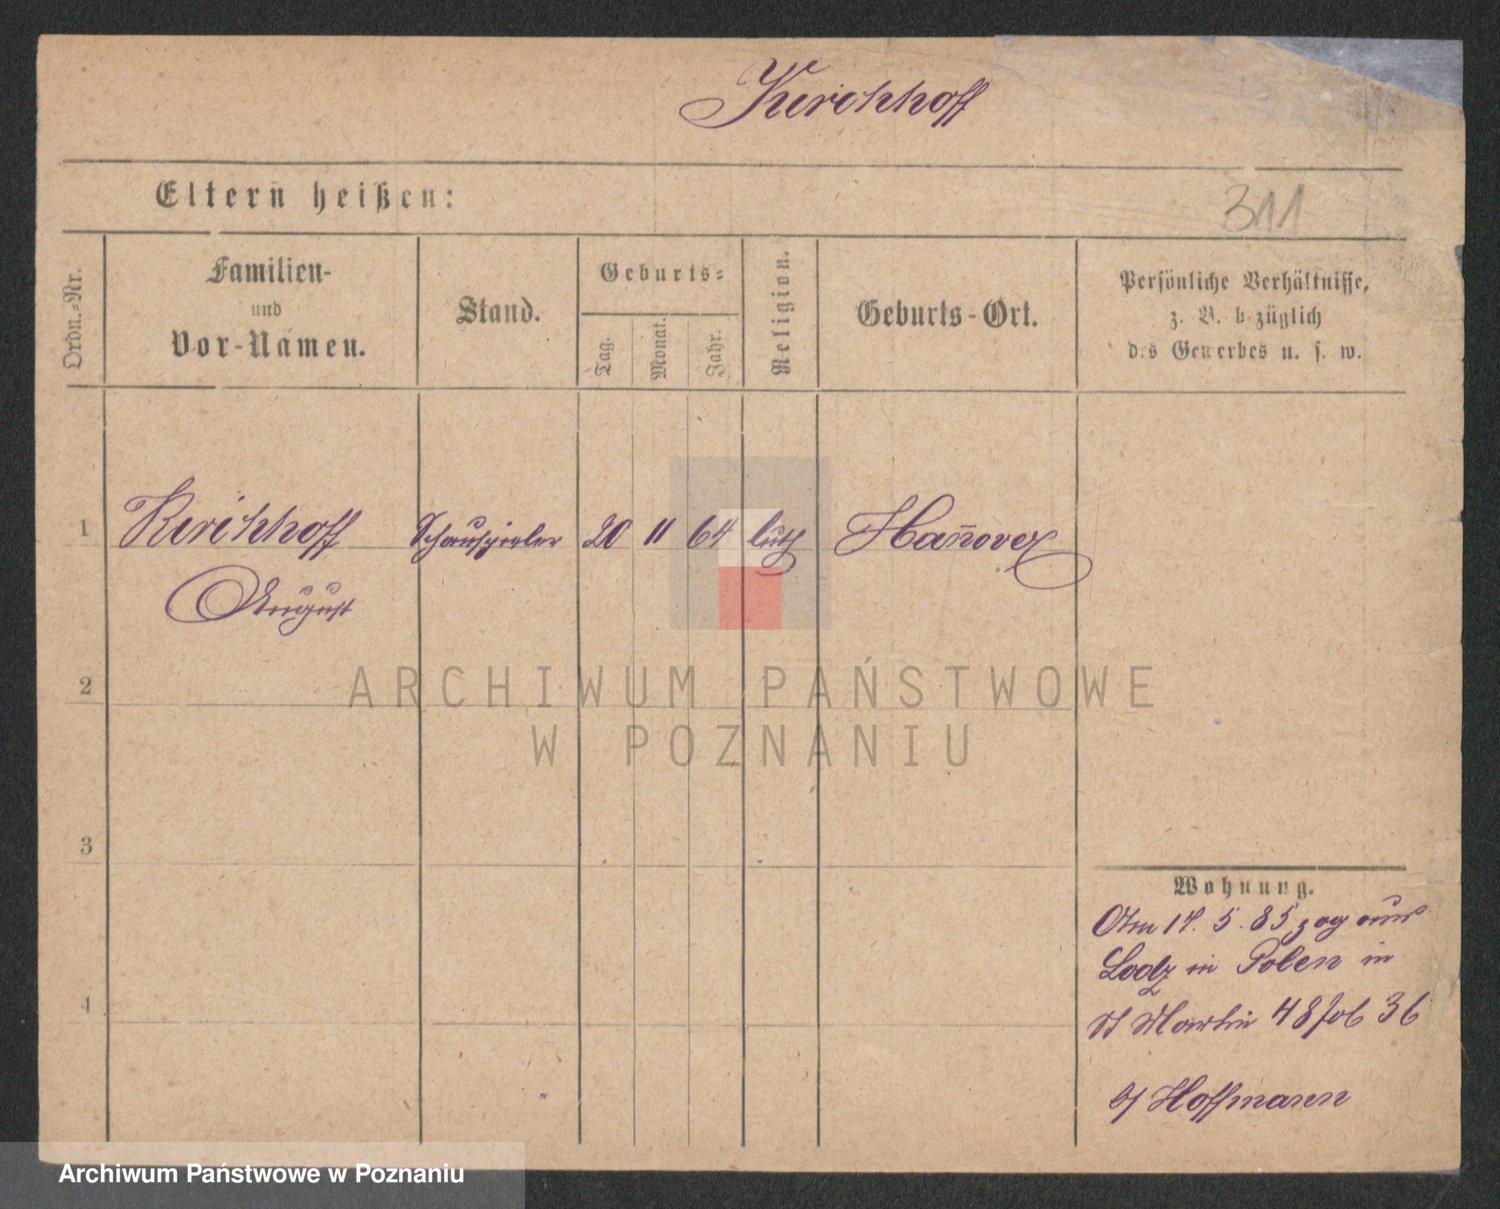 Kirchhoff
Eltern heißen:
311
Ordn.-Nr.
Familien-
und
Vor-Namen.
Stand.
Geburts-
Tag.
Monat.
Jahr.
Religion.
Geburts-Ort.
Persönliche Verhältnisse,
z. B. bezüglich
des Gewerbes u. s. w.
1 Kirchhoff Schauspieler 20 11 64 luth Hannover
August
2
ARCHIWUM PAŃSTWOWE
W POZNANIU
3
Wohnung.
Am 17. 5. 85 zog aus
Lodz in Polen in
4
St Martin 48 36
b/ Hoffmann
Archiwum Państwowe w Poznaniu